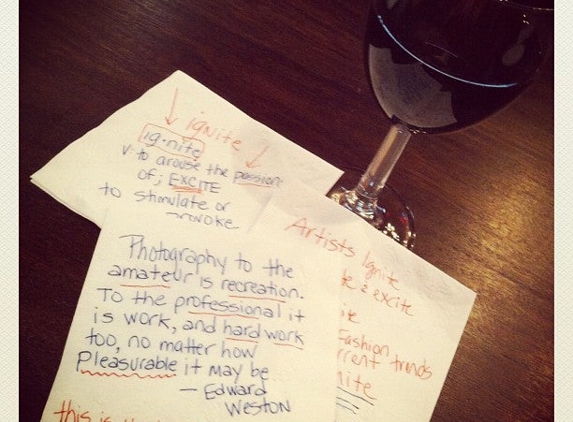 ignite
ig·nite
v. to arouse the passions
of; EXCITE
to stimulate or
provoke
Photography to the
amateur is recreation.
To the professional it
is work, and hard work
too, no matter how
Pleasurable it may be
— Edward
Weston
this is
Artists Ignite
& excite
Fashion
trends